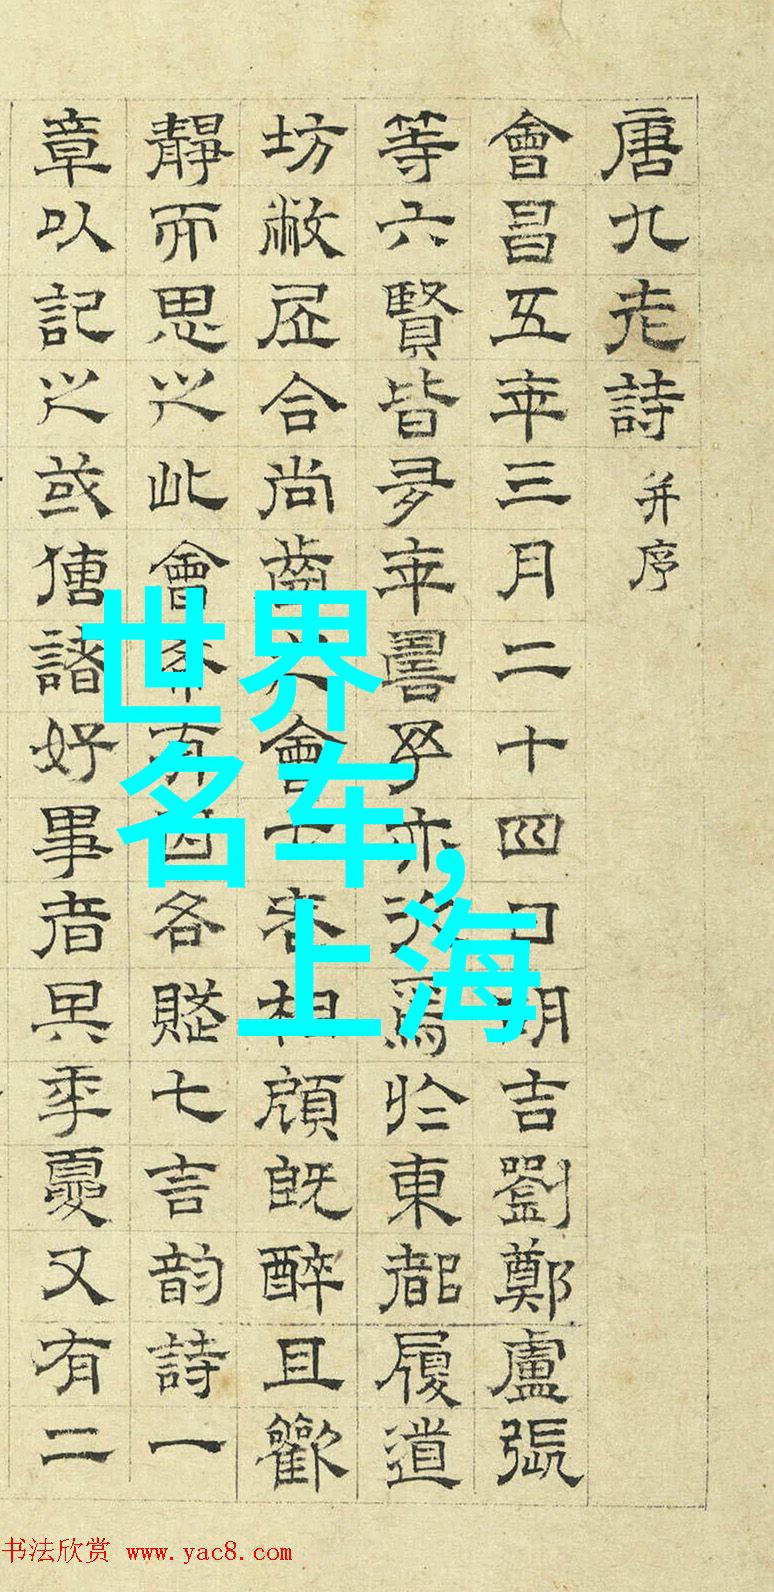 唐九老詩 并序
會昌五年三月二十四日胡吉劉鄭盧張
等六賢皆多年壽予亦次焉於東都履道
坊敝居合尚齒之會七老相顧既醉且歡
靜而思之此會希有因各賦七言韵詩一
章以記之或傳諸好事者其年夏又有二
世界
名车,
上海
书法欣赏 www.yac8.com